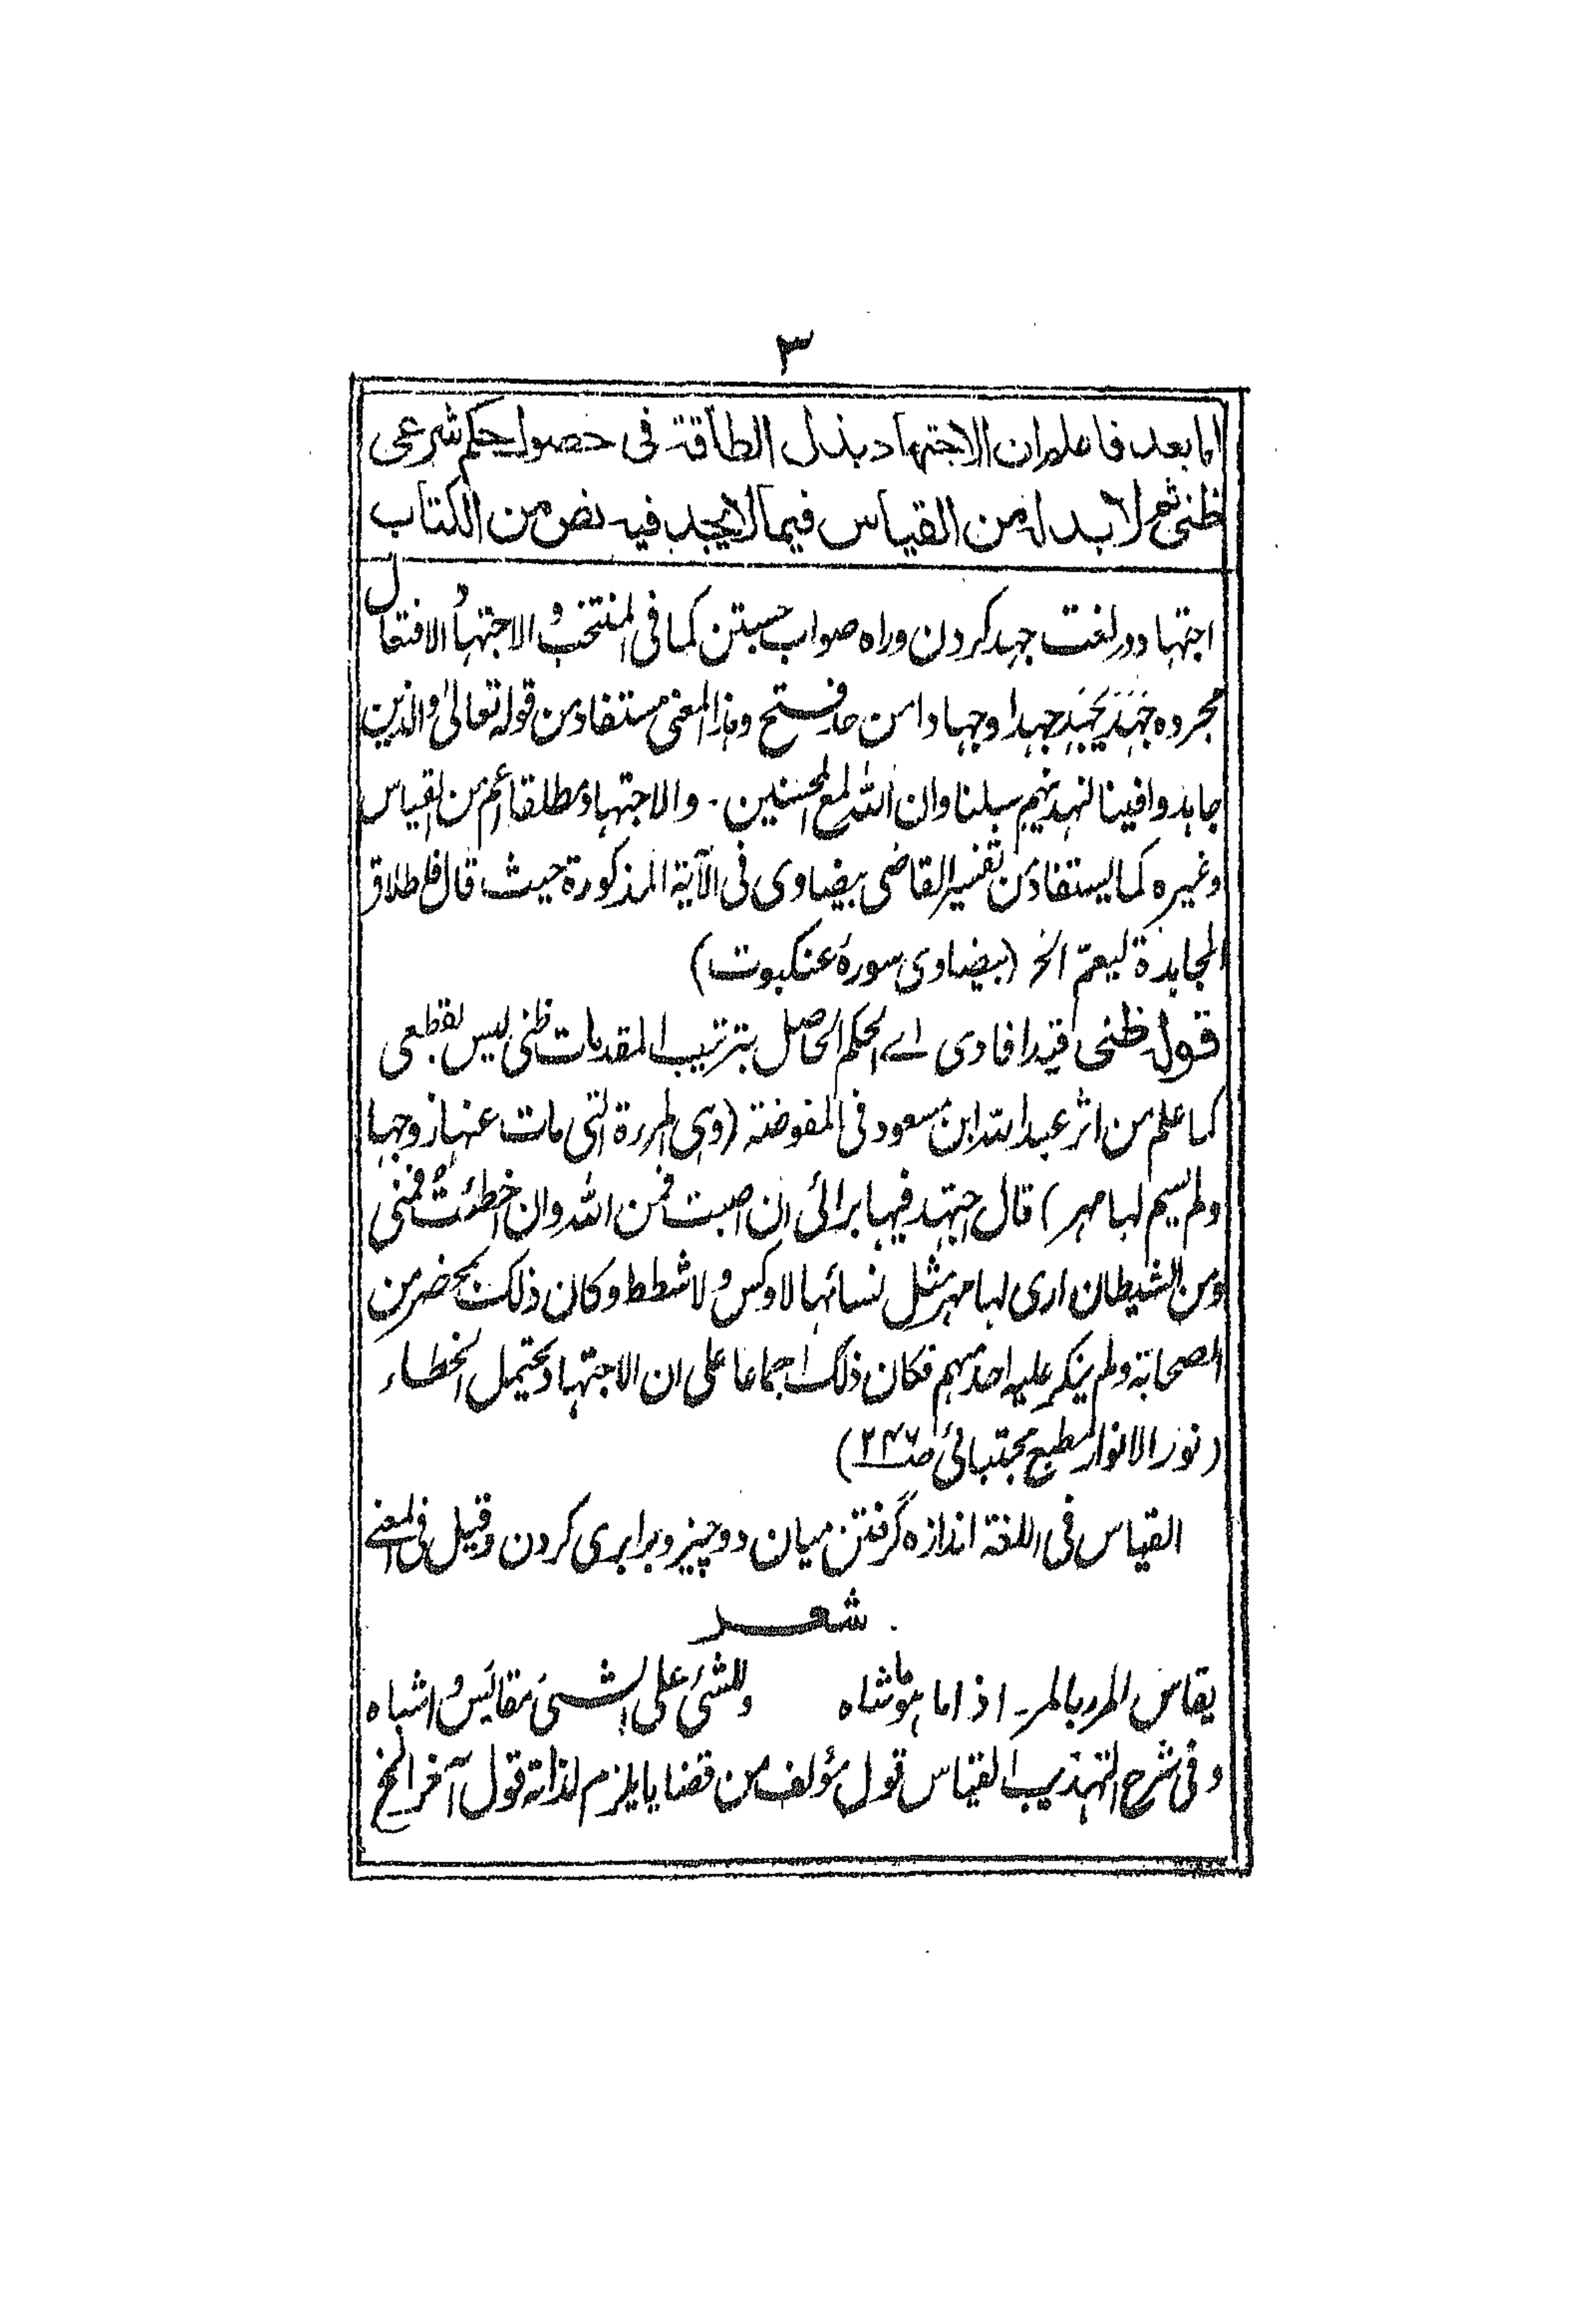 ٣
اما بعد فاعلم ان الاجتهاد بذل الطاقة فى حصول حكم شرعى
ظنى ثم لا بد له من القياس فيما لا يجد فيه نص من الكتاب
اجتہاد در لغت جہد کردن وراہ صواب جستن کما فی المنتخب والاجتہاد الافتعال
مجردہ جَہَدَ یَجْہَدُ جہدا وجہادا من حد فتح وہذا المعنی مستفاد من قولہ تعالیٰ والذین
جاہدوا فینا لنہدینہم سبلنا وان اللہ لمع المحسنین ۔ والاجتہاد مطلقا اعم من القیاس
وغیرہ کما یستفاد من تفسیر القاضی بیضاوی فی الآیۃ المذکورۃ حیث قال فلم طلاق
المجاہدۃ لیعمّ الخ (بیضاوی سورۂ عنکبوت)
قولہ ظنی قید افادی اے الحکم الحاصل بترتیب المقدمات ظنی لیس لقطعی
کما علم من اثر عبد اللہ ابن مسعود فی المفوضۃ (وہی المررۃ التی مات عنہا زوجہا
ولم یسم لہا مہر) قال اجتہد فیہا برائی ان اصبت فمن اللہ وان اخطئت فمنی
ومن الشیطان اری لہا مہر مثل نسائہا لا وکس ولا شطط وکان ذلک بمحضر من
الصحابۃ ولم ینکر علیہ احد منہم فکان ذلک اجماعا علی ان الاجتہاد یحتمل الخطاء
(نور الانوار مطبع مجتبائی صـ ۲۴۶)
القیاس فی اللغۃ اندازہ گرفتن میان دو چیز وبرابری کردن وقیل فی المعنے
شعر
یقاس المرء بالمرء اذا ما ہو ماشاہ وللشئ علی الشئ مقائیس واشباہ
وفی شرح التہذیب القیاس قول مؤلف من قضایا یلزم لذاتہ قول آخر الخ